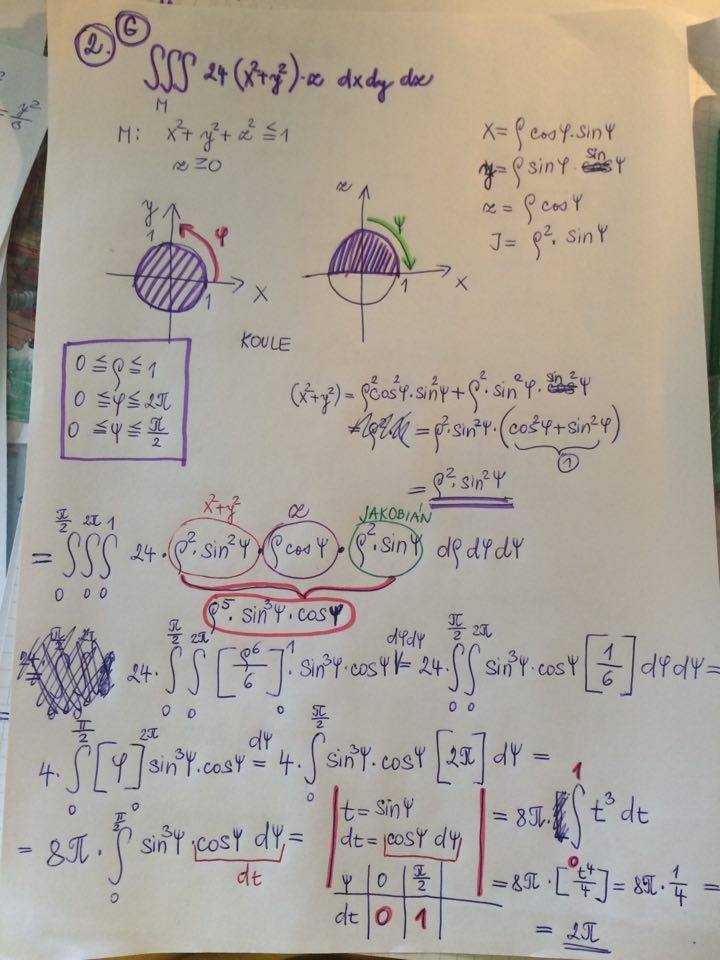 2. G
∫∫∫ 24(x²+y²)·z dx dy dz
M
M: x²+y²+z² ≦ 1
z ≧ 0
x = ρ cosφ·sinψ
y = ρ sinφ·sinψ
z = ρ cosψ
J = ρ²·sinψ
y 1 φ 1 x
z ψ 1 x
KOULE
0 ≦ ρ ≦ 1
0 ≦ φ ≦ 2π
0 ≦ ψ ≦ π/2
(x²+y²) = ρ²cos²φ·sin²ψ + ρ²·sin²φ·sin²ψ
= ρ²·sin²ψ·(cos²φ+sin²φ)
1
= ρ²·sin²ψ
x²+y² z JAKOBIÁN
= ∫₀^{π/2} ∫₀^{2π} ∫₀^{1} 24·ρ²·sin²ψ·ρcosψ·ρ²·sinψ dρ dφ dψ
ρ⁵·sin³ψ·cosψ
24·∫₀^{π/2} ∫₀^{2π} [ρ⁶/6]₀¹·sin³ψ·cosψ dφdψ = 24·∫₀^{π/2} ∫₀^{2π} sin³ψ·cosψ [1/6] dφ dψ =
4·∫₀^{π/2} [φ]₀^{2π} sin³ψ·cosψ dψ = 4·∫₀^{π/2} sin³ψ·cosψ [2π] dψ =
= 8π·∫₀^{π/2} sin³ψ·cosψ dψ =
dt
t = sinψ
dt = cosψ dψ
ψ | 0 | π/2
dt | 0 | 1
= 8π·∫₀¹ t³ dt
= 8π·[t⁴/4] = 8π·1/4 =
= 2π